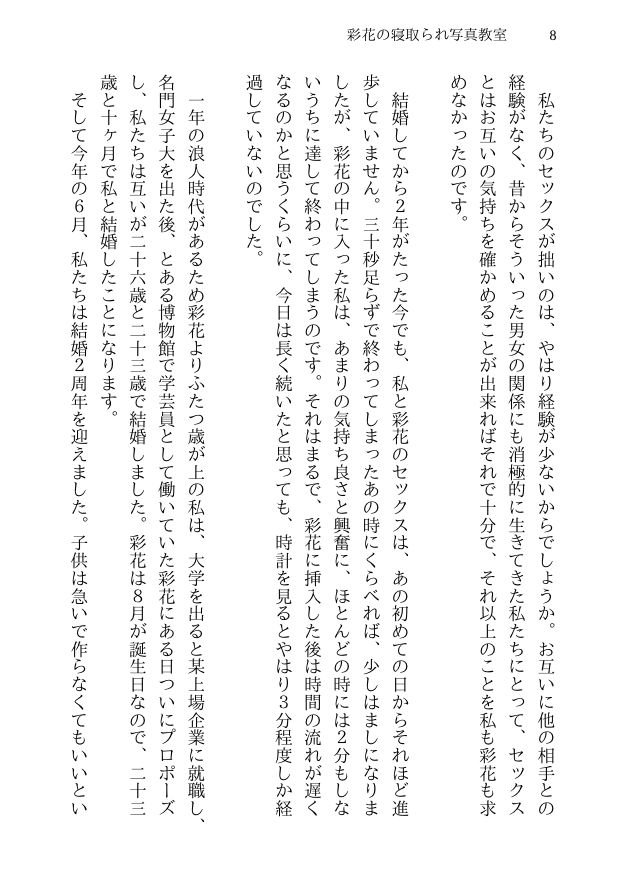 彩花の寝取られ写真教室
8
私たちのセックスが拙いのは、やはり経験が少ないからでしょうか。お互いに他の相手との
経験がなく、昔からそういった男女の関係にも消極的に生きてきた私たちにとって、セックス
とはお互いの気持ちを確かめることが出来ればそれで十分で、それ以上のことを私も彩花も求
めなかったのです。
結婚してから２年がたった今でも、私と彩花のセックスは、あの初めての日からそれほど進
歩していません。三十秒足らずで終わってしまったあの時にくらべれば、少しはましになりま
したが、彩花の中に入った私は、あまりの気持ち良さと興奮に、ほとんどの時には２分もしな
いうちに達して終わってしまうのです。それはまるで、彩花に挿入した後は時間の流れが遅く
なるのかと思うくらいに、今日は長く続いたと思っても、時計を見るとやはり３分程度しか経
過していないのでした。
一年の浪人時代があるため彩花よりふたつ歳が上の私は、大学を出ると某上場企業に就職し、
名門女子大を出た後、とある博物館で学芸員として働いていた彩花にある日ついにプロポーズ
し、私たちは互いが二十六歳と二十三歳で結婚しました。彩花は８月が誕生日なので、二十三
歳と十ヶ月で私と結婚したことになります。
そして今年の６月、私たちは結婚２周年を迎えました。子供は急いで作らなくてもいいとい